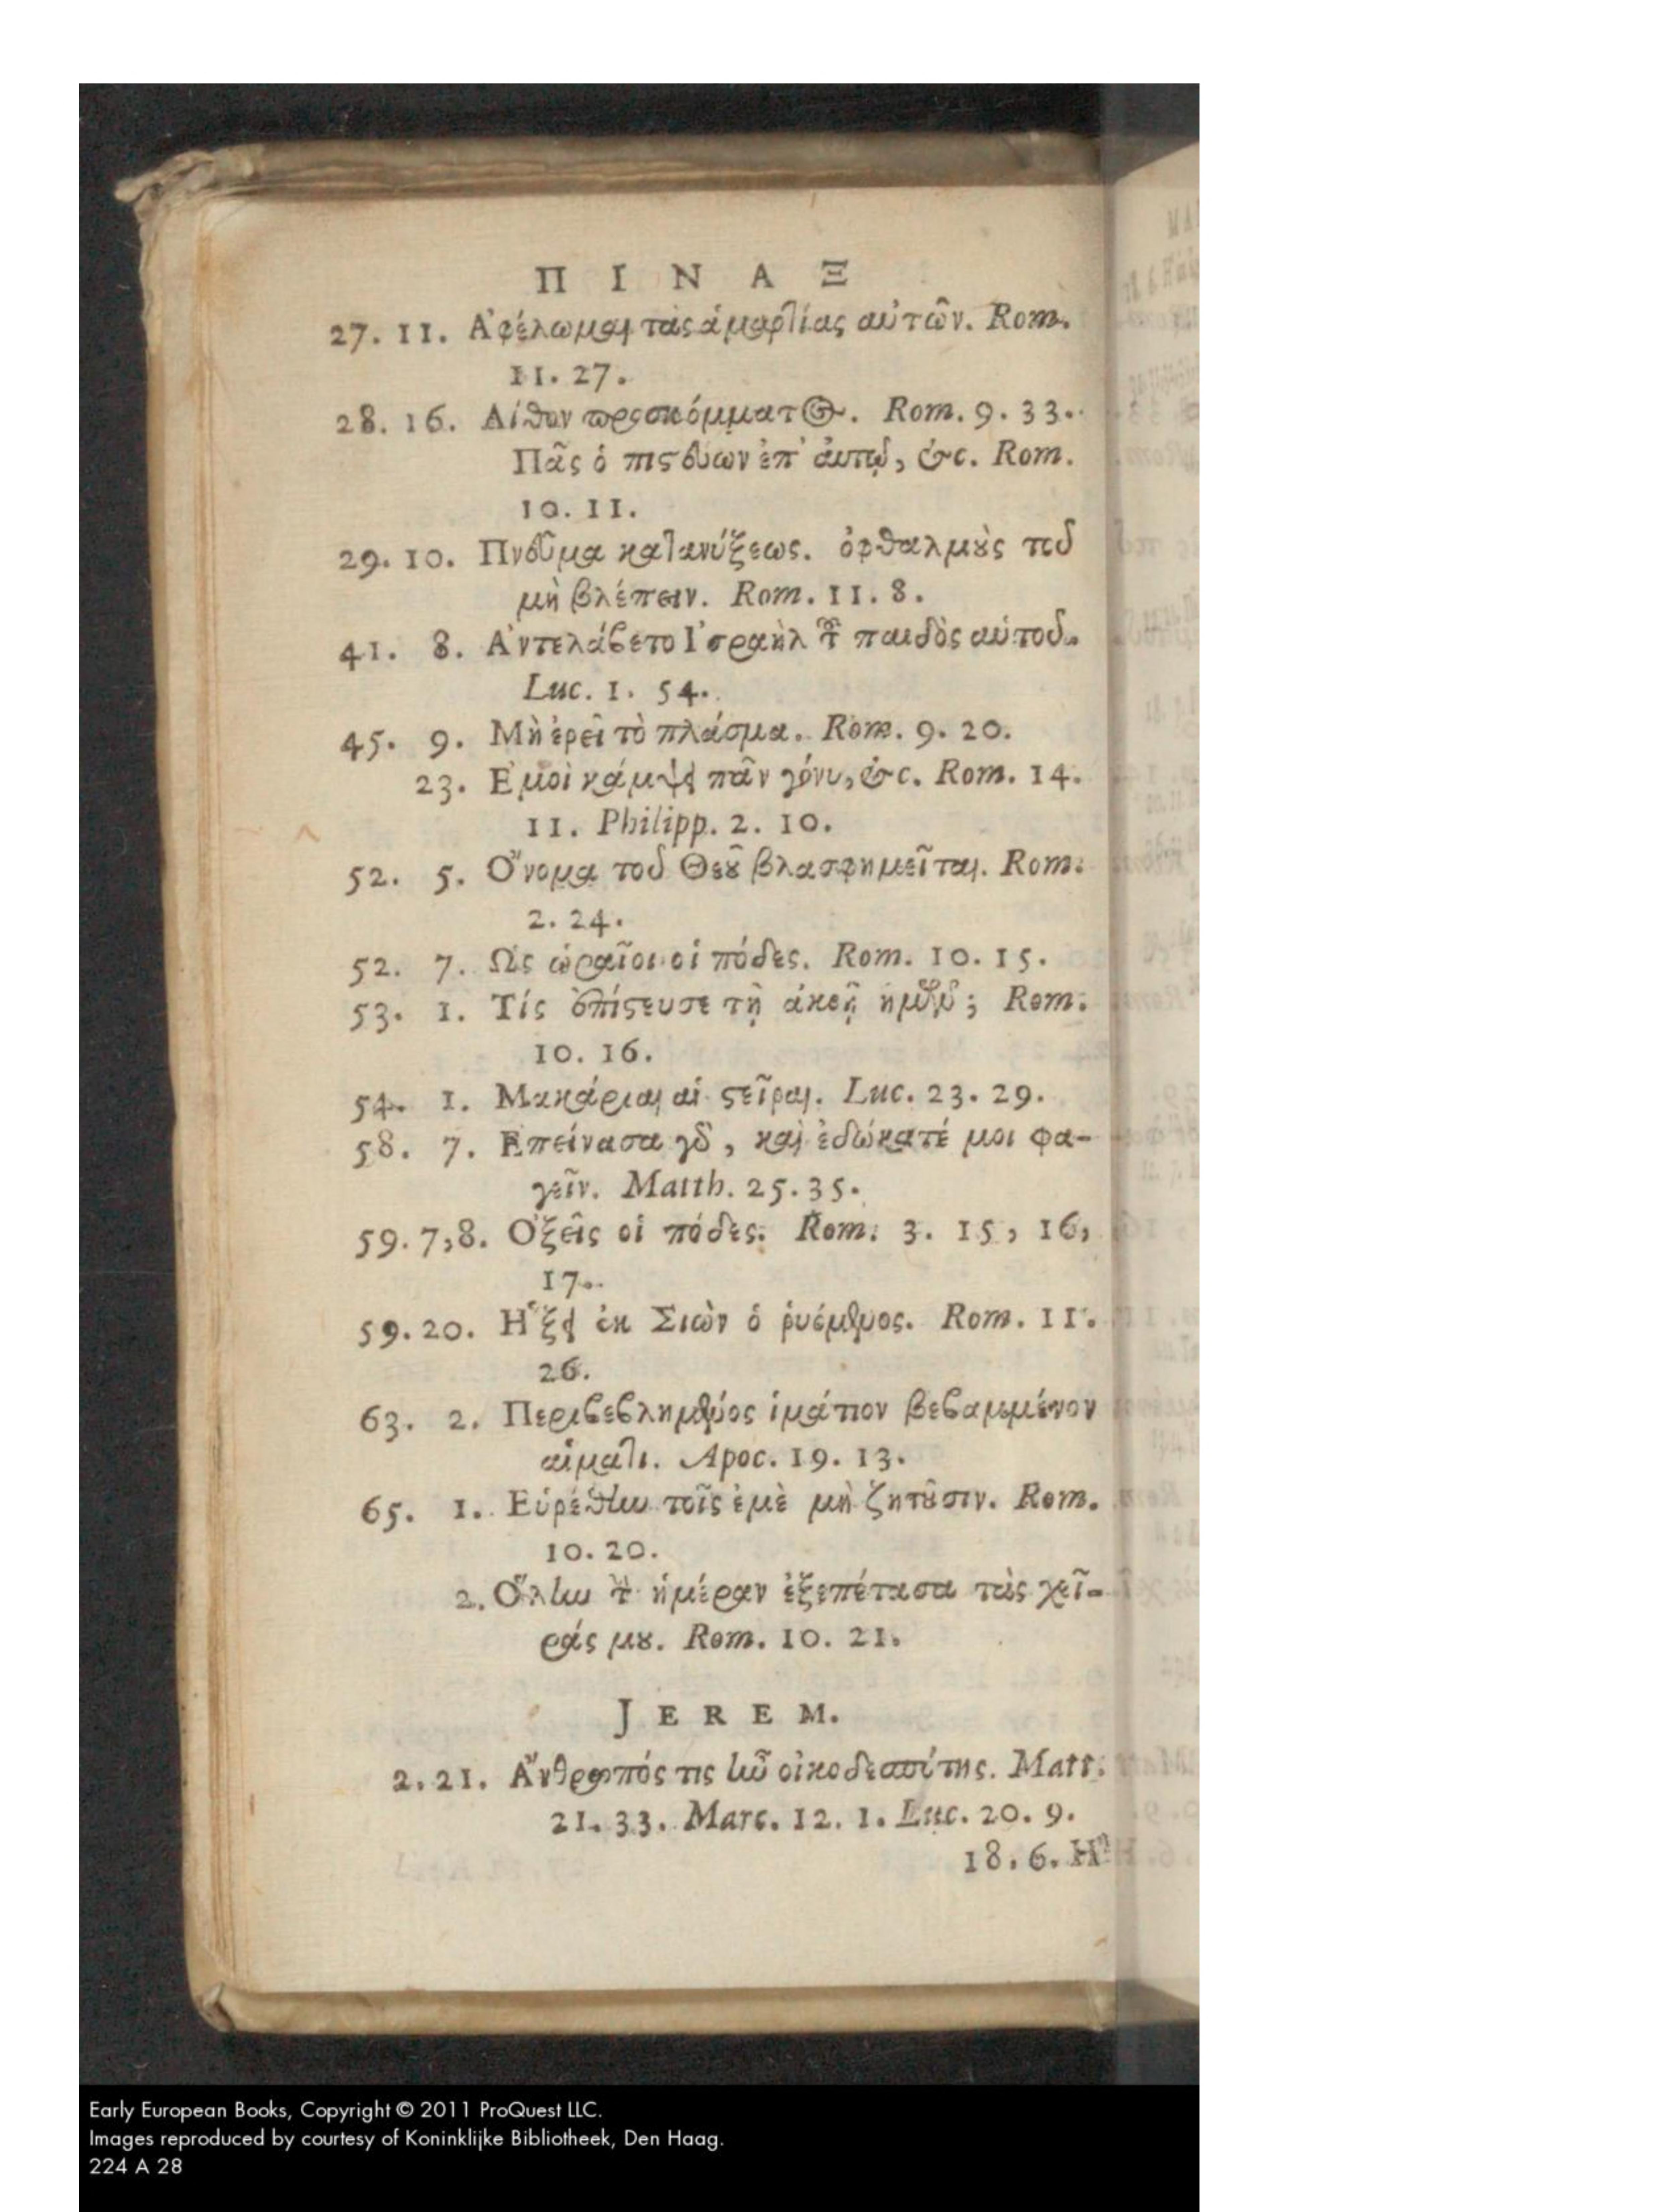 Π Ι Ν Α Ξ
27. 11. Ἀφέλωμαι τὰς ἁμαρτίας αὐτῶν. Rom.
11. 27.
28. 16. Λίθον προσκόμματος. Rom. 9. 33.
Πᾶς ὁ πιστεύων ἐπ' ἀυτῷ, &c. Rom.
10. 11.
29. 10. Πνεῦμα κατανύξεως. ὀφθαλμοὺς τοῦ
μὴ βλέπειν. Rom. 11. 8.
41. 8. Ἀντελάβετο Ἰσραὴλ τοῦ παιδὸς αὐτοῦ.
Luc. 1. 54.
45. 9. Μὴ ἐρεῖ τὸ πλάσμα. Rom. 9. 20.
23. Ἐμοὶ κάμψει πᾶν γόνυ, &c. Rom. 14.
11. Philipp. 2. 10.
52. 5. Ὄνομα τοῦ Θεοῦ βλασφημεῖται. Rom.
2. 24.
52. 7. Ὡς ὡραῖοι οἱ πόδες. Rom. 10. 15.
53. 1. Τίς ἐπίστευσε τῇ ἀκοῇ ἡμῶν; Rom.
10. 16.
54. 1. Μακάριαι αἱ στεῖραι. Luc. 23. 29.
58. 7. Ἐπείνασα γὸ, καὶ ἐδώκατέ μοι φα-
γεῖν. Matth. 25. 35.
59. 7,8. Ὀξεῖς οἱ πόδες. Rom. 3. 15, 16,
17.
59. 20. Ἥξει ἐκ Σιὼν ὁ ῥυόμενος. Rom. 11.
26.
63. 2. Περιβεβλημένος ἱμάτιον βεβαμμένον
αἵματι. Apoc. 19. 13.
65. 1. Εὑρέθην τοῖς ἐμὲ μὴ ζητοῦσιν. Rom.
10. 20.
2. Ὅλην τὴν ἡμέραν ἐξεπέτασα τὰς χεῖ-
ράς μου. Rom. 10. 21.
J E R E M.
2. 21. Ἄνθρωπός τις ἦν οἰκοδεσπότης. Matt.
21. 33. Marc. 12. 1. Luc. 20. 9.
18. 6. Ἢ
Early European Books, Copyright © 2011 ProQuest LLC.
Images reproduced by courtesy of Koninklijke Bibliotheek, Den Haag.
224 A 28